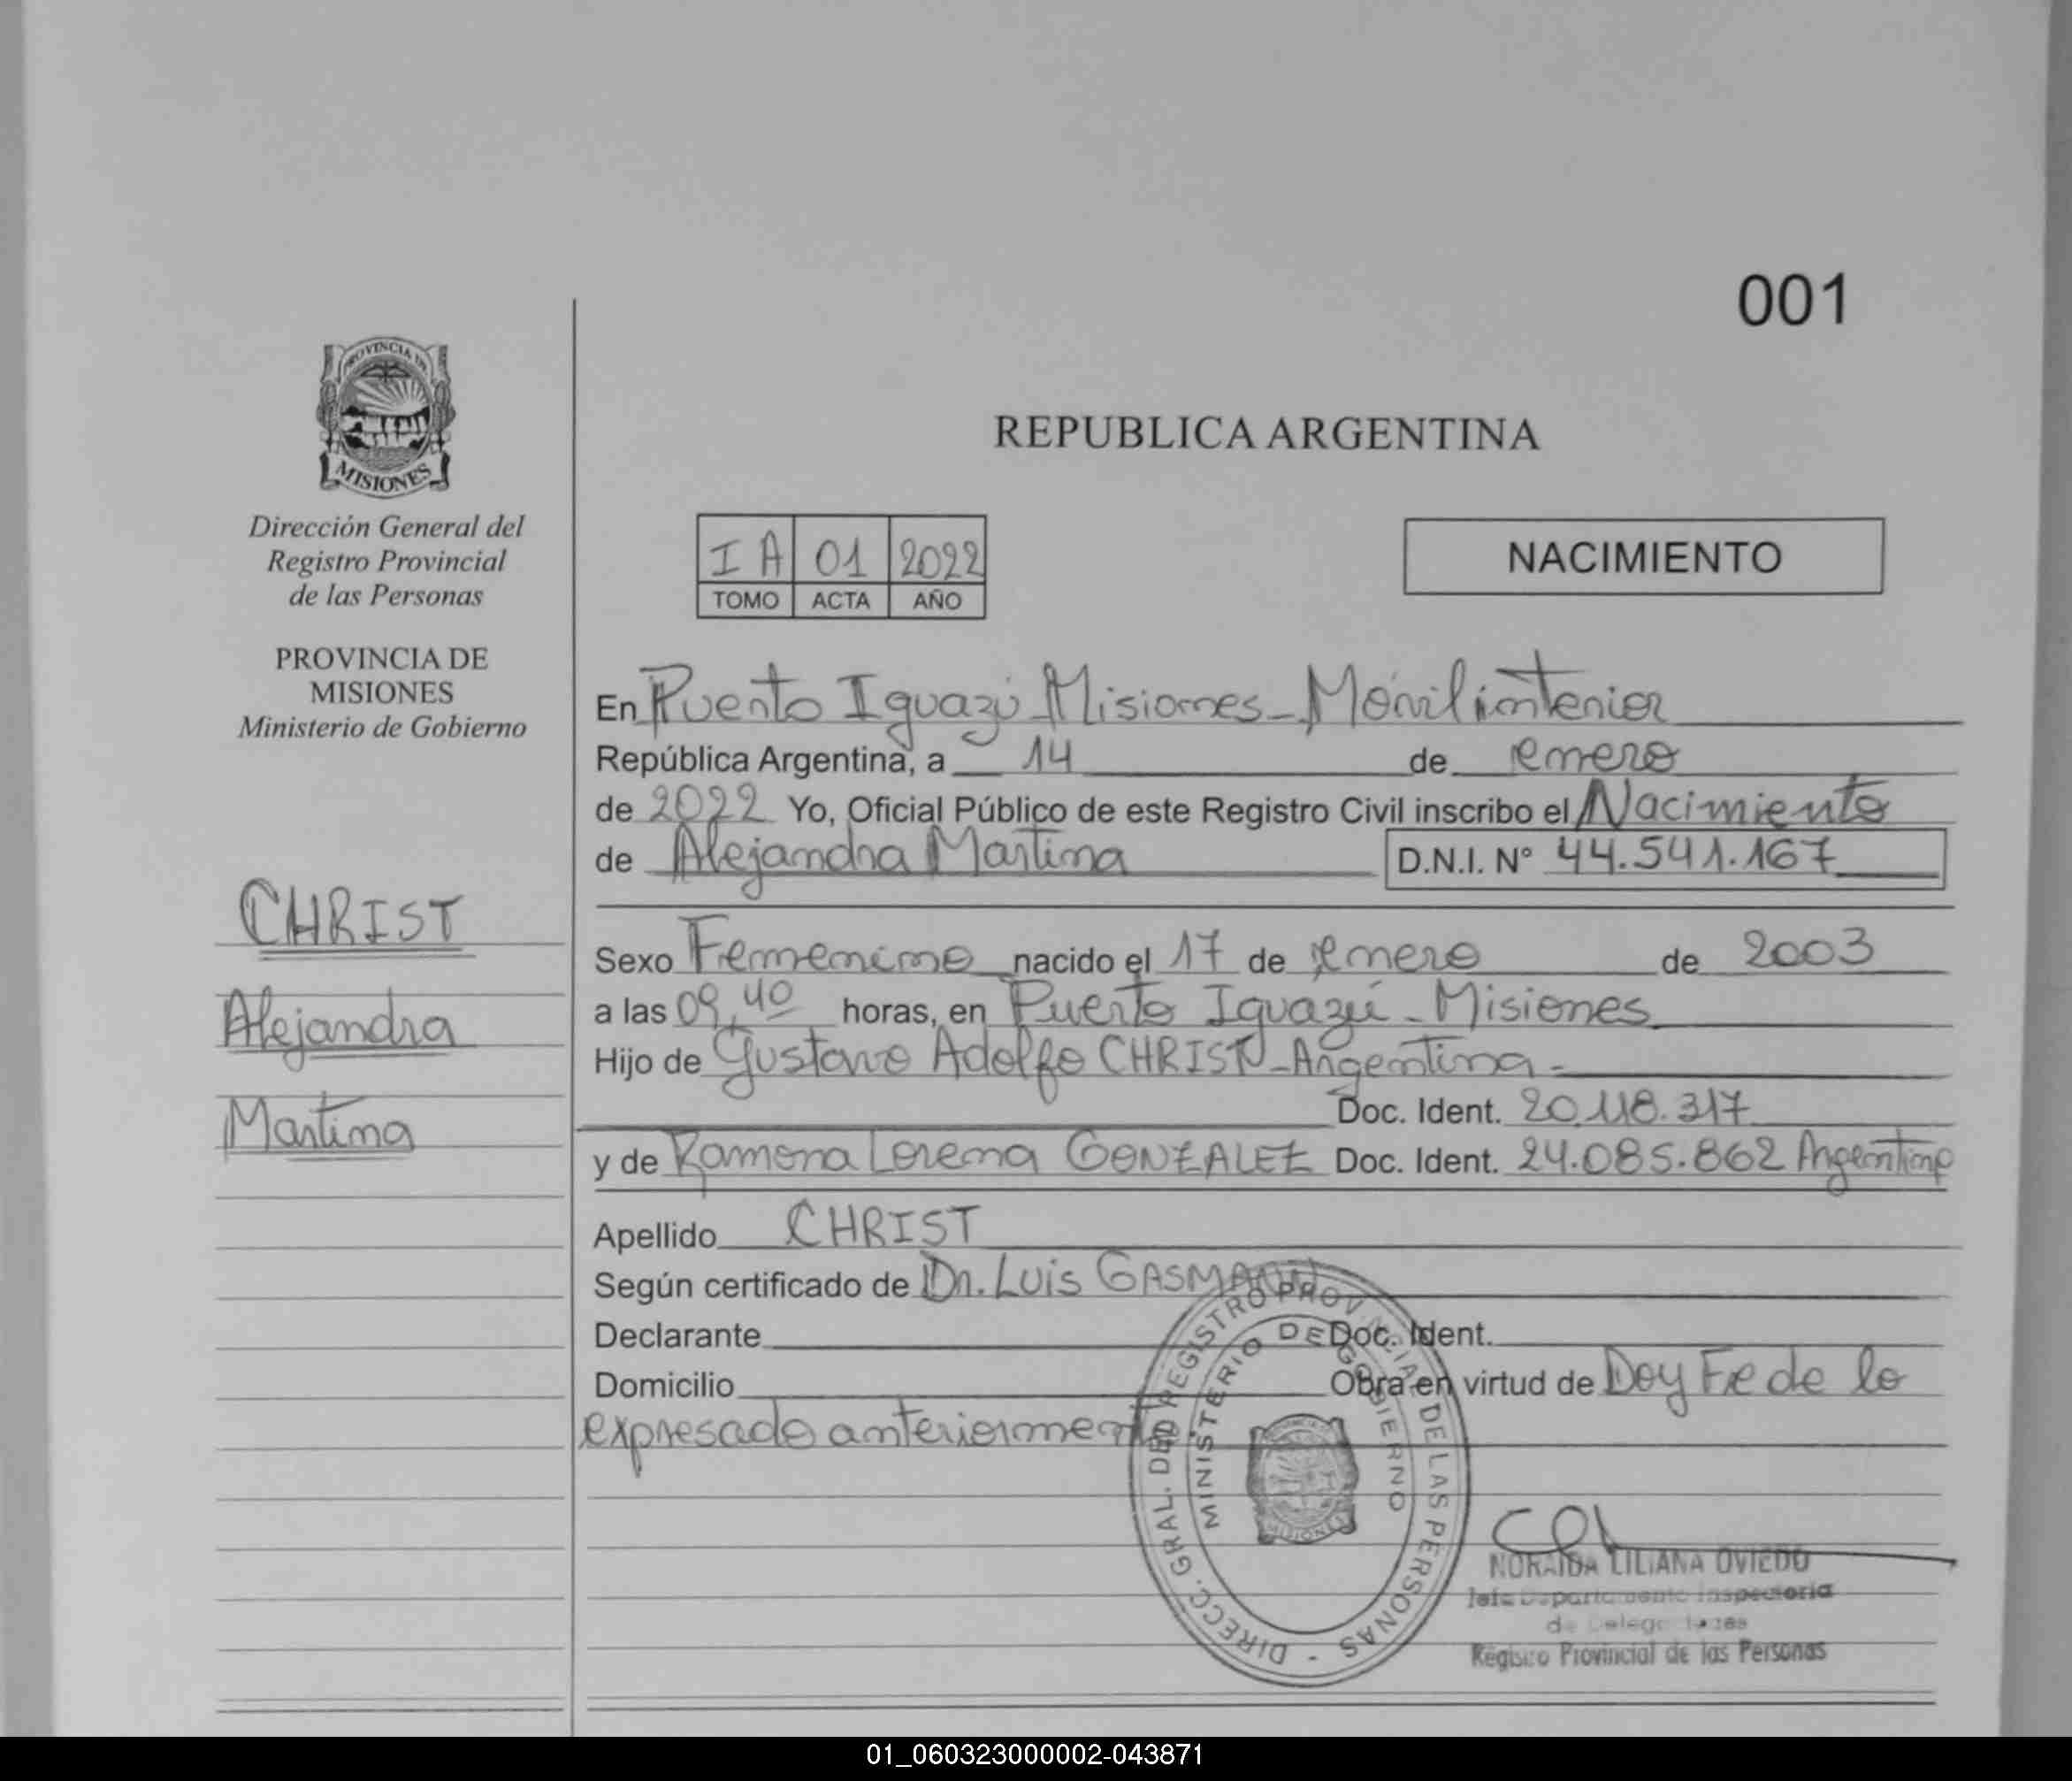 001
PROVINCIA DE
MISIONES
REPUBLICA ARGENTINA
Dirección General del
Registro Provincial
de las Personas
PROVINCIA DE
MISIONES
Ministerio de Gobierno
I A 01 2022
TOMO ACTA AÑO
NACIMIENTO
En Puerto Iguazú Misiones - Móvil interior
República Argentina, a 14 de enero
de 2022 Yo, Oficial Público de este Registro Civil inscribo el Nacimiento
de Alejandra Martina D.N.I. N° 44.541.167
CHRIST
Alejandra
Martina
Sexo Femenino nacido el 17 de enero de 2003
a las 09,40 horas, en Puerto Iguazú - Misiones
Hijo de Gustavo Adolfo CHRIST - Argentina -
Doc. Ident. 20.118.317
y de Ramona Lorena GONZALEZ Doc. Ident. 24.085.862 Argentina
Apellido CHRIST
Según certificado de Dr. Luis GASMANN
Declarante Doc. Ident.
Domicilio Obra en virtud de Doy Fe de lo
expresado anteriormente
DIRECC. GRAL. DEL REGISTRO PROVINCIAL DE LAS PERSONAS -
MINISTERIO DE GOBIERNO
MISIONES
NORAIDA LILIANA OVIEDO
Jefe Departamento Inspectoria
de Delegaciones
Registro Provincial de las Personas
01_060323000002-043871